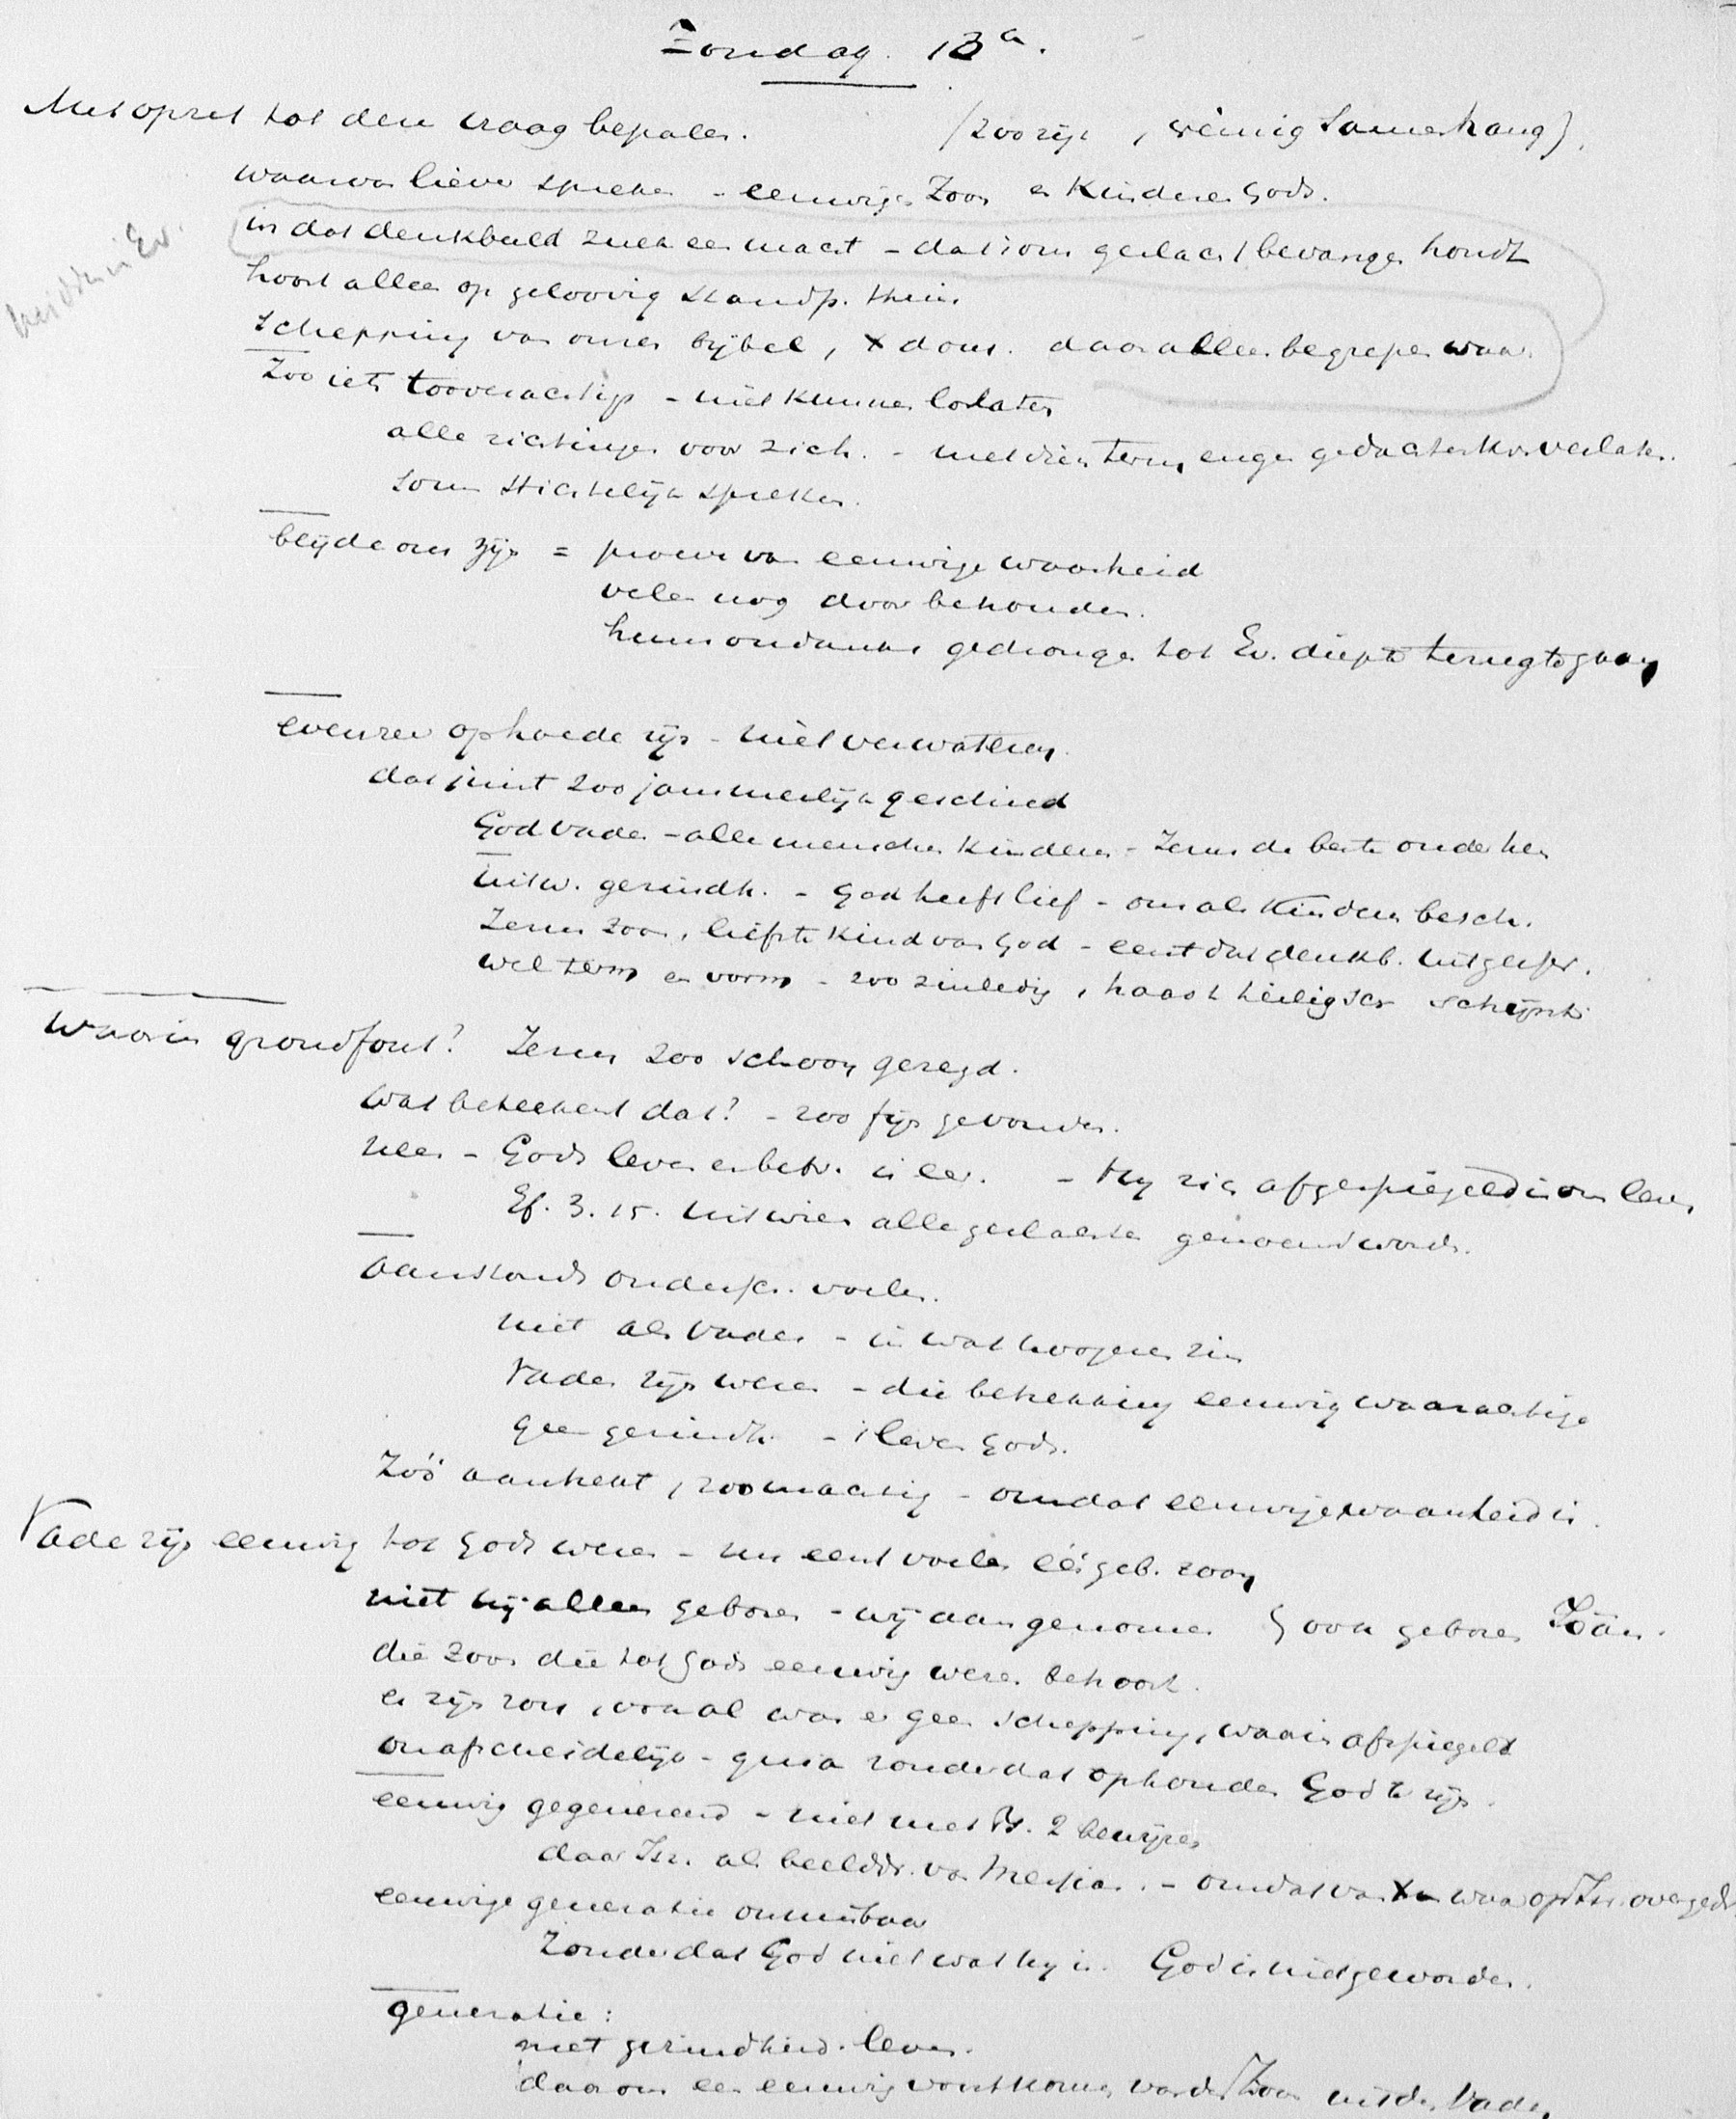 Zondag. 13a.
Met opzet tot deze vraag bepalen. (zoo rijk, weinig samenhang).
waarvan liever spreken - eeuwige Zoon en Kinderen Gods.
in dat denkbeeld zulk een macht - dat 't ons geslacht bevangen houdt
hoort alleen op geloovig standp. thuis
midden in Ev.
Schepping van onzen bijbel, X dom. daar alleen begrepen waar.
Zoo iets tooverachtigs - niet kunnen loslaten
alle richtingen voor zich. - met dien term, enge gedachtenkr. verlaten.
soms stichtelijk spreken.
blijde om zijn = proeve van eeuwige waarheid
velen nog door behouden.
huns ondanks gedrongen tot Ev. diepte terug te gaan
evenzeer op hoede zijn - niet verwateren.
dat juist zoo jammerlijk geschied
God Vader - alle menschen kinderen - Jezus de beste onder hen
uitw. gezindh. - God heeft lief - ons als kinderen besch.
Jezus zoon, liefste kind van God - eerst dat denkb. uitgespr.
wel term en vorm - zoo zinledig, haast heiligsch. schijnt
Waarin grondfout? Jezus zoo schoon gezegd.
Wat beteekent dat? - zoo fijn gevonden.
neen - Gods leven en betr. in ler. - Hij zich afgespiegeld in ons leven
Ef. 3.15. Uit wien alle geslachten genoemd wordt.
Aanstonds ondersch. voelen.
niet als Vader - in wat hoogeren zin
Vader zijn wezen - die betrekking eeuwig waarachtige
geen gezindh. - 't leven Gods.
Zóó aantrekt, zoo machtig - omdat eeuwige waarheid is.
Vader zijn eeuwig tot Gods wezen - nu eerst voelen ééngeb. zoon
niet hij alleen geboren - wij aangenomen ook geboren Joan.
die Zoon die tot Gods eeuwig wezen behoort.
er zijn zou, ook al was er geen schepping, waarin afspiegelt
onafscheidelijk - quia zonder dat ophouden God te zijn.
eeuwig gegenereerd - niet met Ps. 2 bewijzen
daar Isr. als beelddr. van Messias. - omdat van X waar op Isr. overgedr.
eeuwige generatie onmisbaar
Zonder dat God niet wat hij is. God is niet geworden.
generatie:
niet gezindheid. leven.
daarom een eeuwig voortkomen van den Zoon uit den Vader